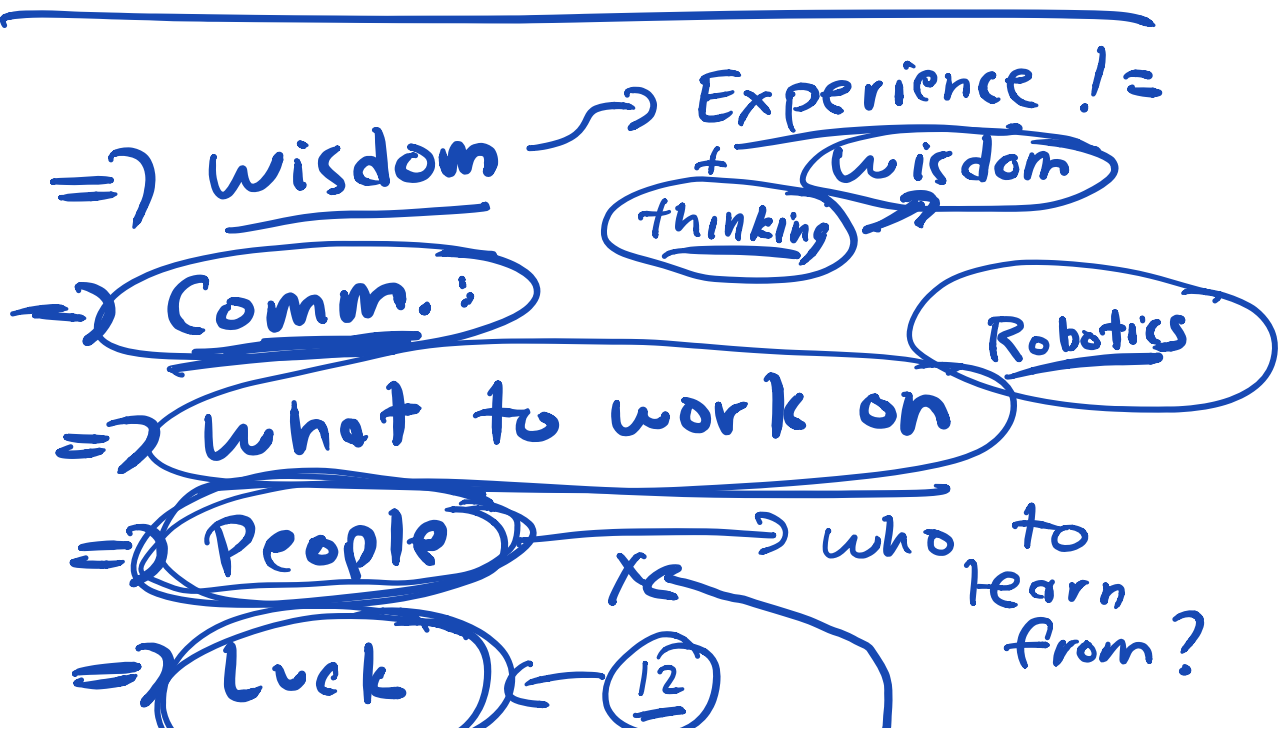 => wisdom -> Experience !=
+ wisdom
thinking
=> Comm. :
Robotics
=> what to work on
=> People -> who to
learn
x
from?
=> Luck <- 12